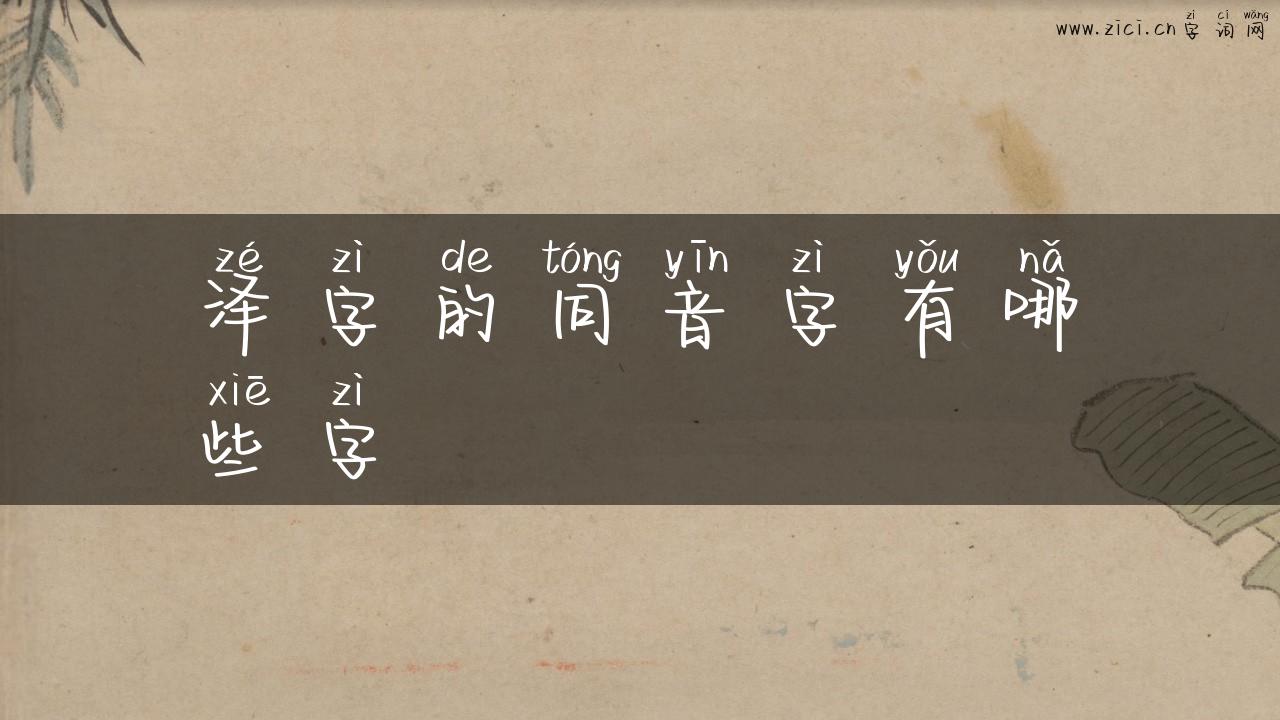 zì cí wǎng
www.zici.cn 字词网
zé zì de tóng yīn zì yǒu nǎ
泽字的同音字有哪
xiē zì
些字